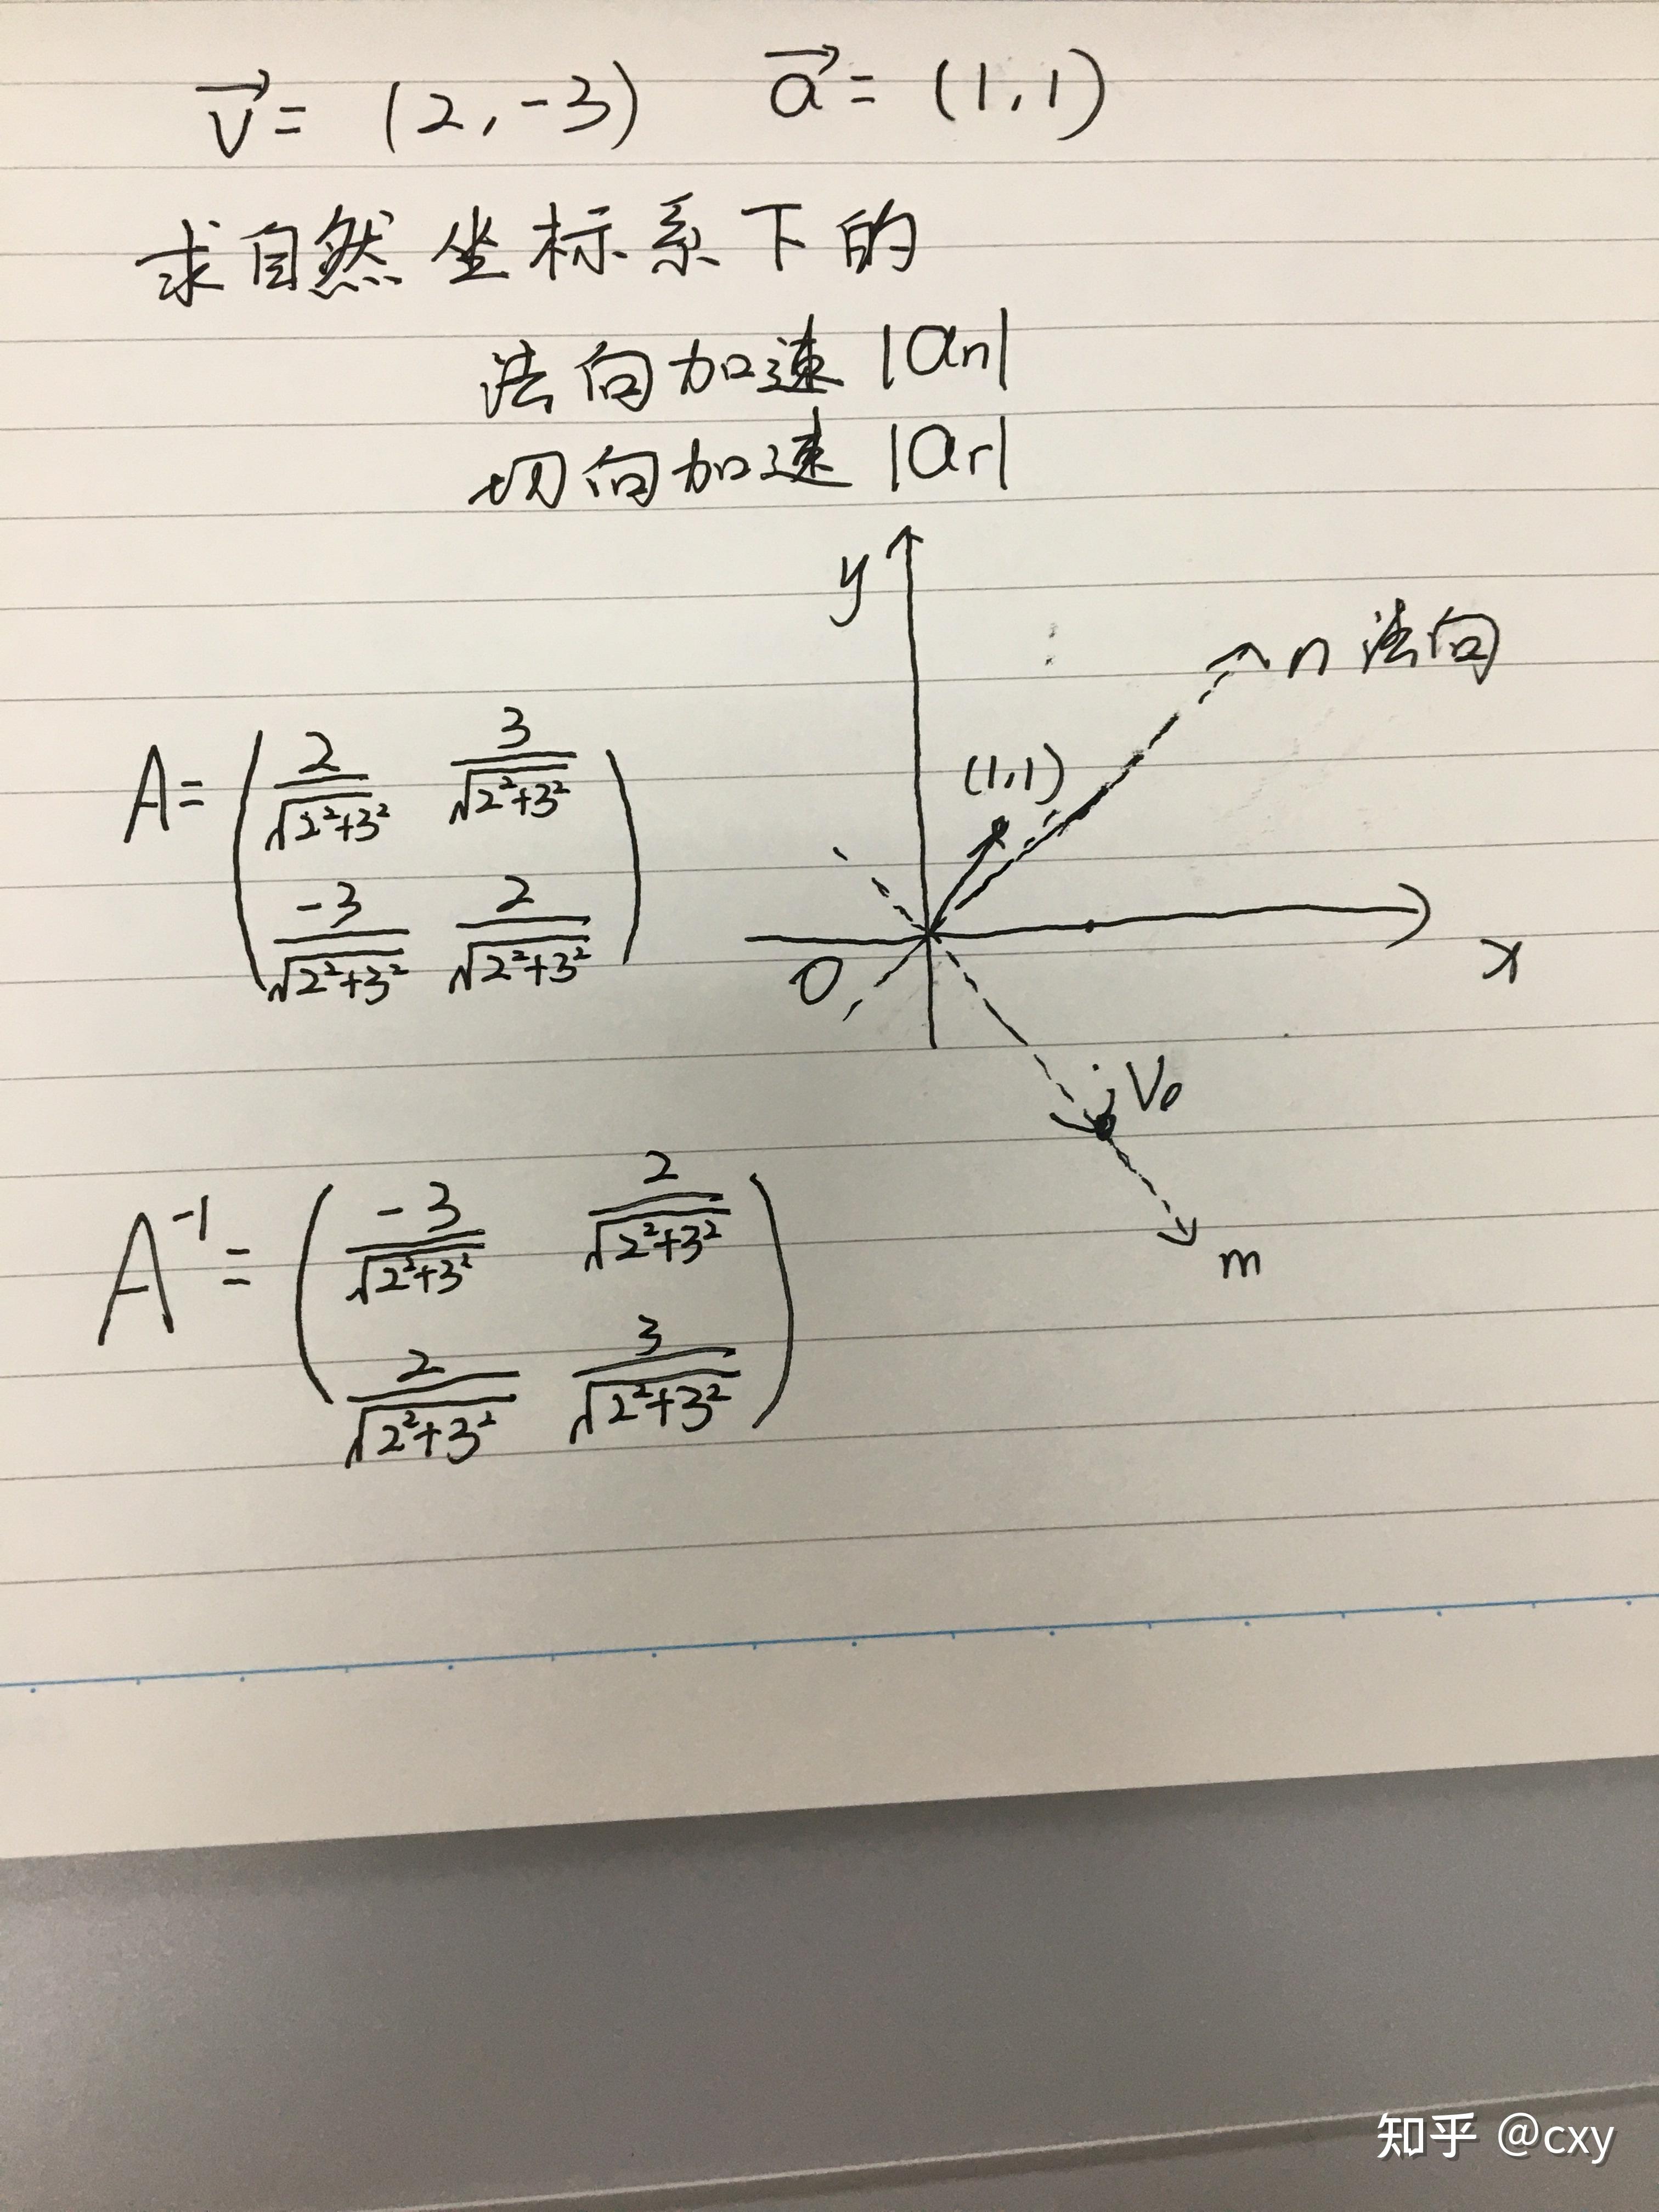 v⃗ = (2, -3)   a⃗ = (1,1)
求自然坐标系下的
法向加速 |an|
切向加速 |aτ|
y
n 法向
(1,1)
A = ( 2/√(2²+3²)  3/√(2²+3²)
-3/√(2²+3²)  2/√(2²+3²) )
O
x
V₀
m
A⁻¹ = ( -3/√(2²+3²)  2/√(2²+3²)
2/√(2²+3²)  3/√(2²+3²) )
知乎 @cxy